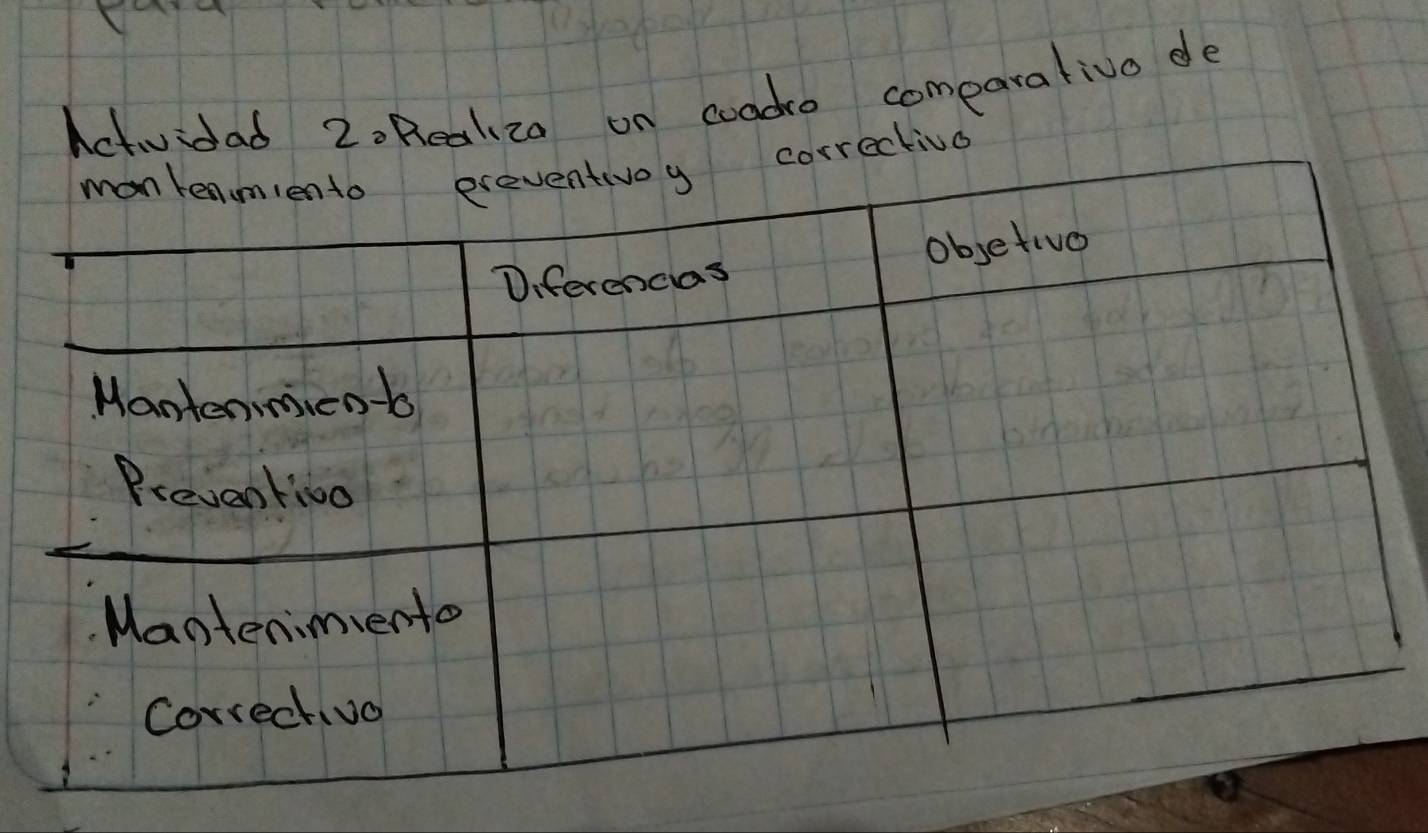 para
Actividad 2. Realiza un cuadro comparativo de
mantenimiento preventivo y correctivo
Diferencias Objetivo
Mantenimiento
Preventivo
Mantenimiento
Correctivo